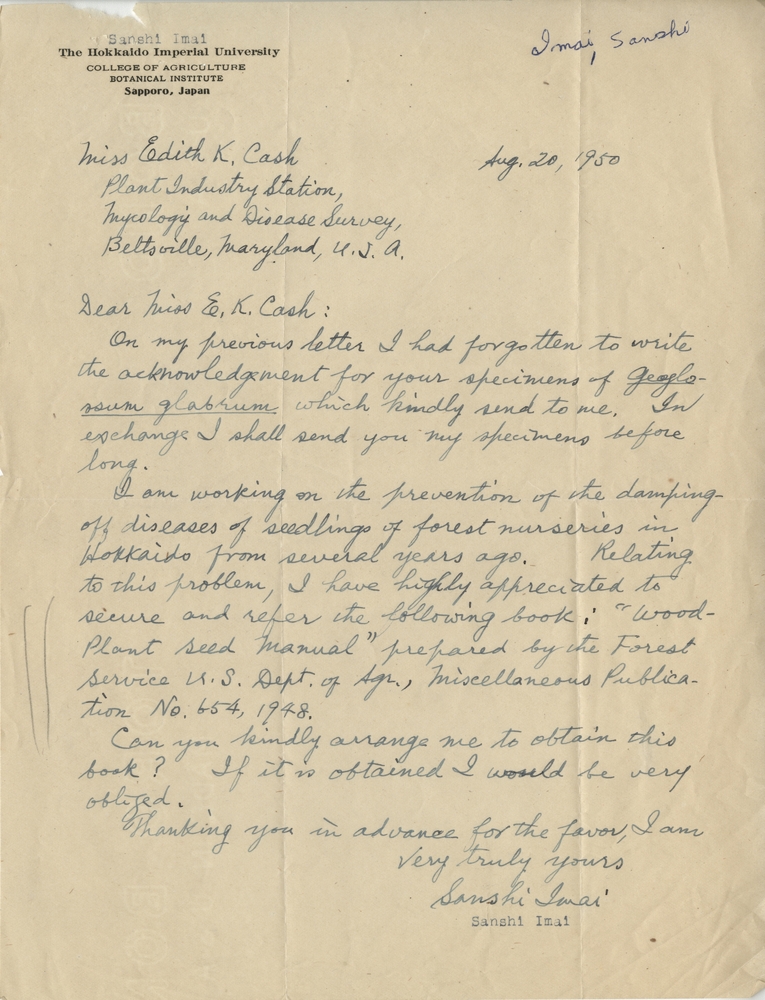 Sanshi Imai
The Hokkaido Imperial University
COLLEGE OF AGRICULTURE
BOTANICAL INSTITUTE
Sapporo, Japan
Imai, Sanshi
Miss Edith K. Cash
Aug. 20, 1950
Plant Industry Station,
Mycology and Disease Survey,
Beltsville, Maryland, U.S.A.
Dear Miss E. K. Cash:
On my previous letter I had forgotten to write
the acknowledgement for your specimens of Geoglo-
ssum glabrum which kindly send to me. In
exchange I shall send you my specimens before
long.
I am working on the prevention of the damping-
off diseases of seedlings of forest nurseries in
Hokkaido from several years ago. Relating
to this problem, I have highly appreciated to
secure and refer the following book: "Wood-
Plant Seed Manual" prepared by the Forest
Service U.S. Dept. of Agr., Miscellaneous Publica-
tion No. 654, 1948.
Can you kindly arrange me to obtain this
book? If it is obtained I would be very
obliged.
Thanking you in advance for the favor, I am
Very truly yours
Sanshi Imai
Sanshi Imai